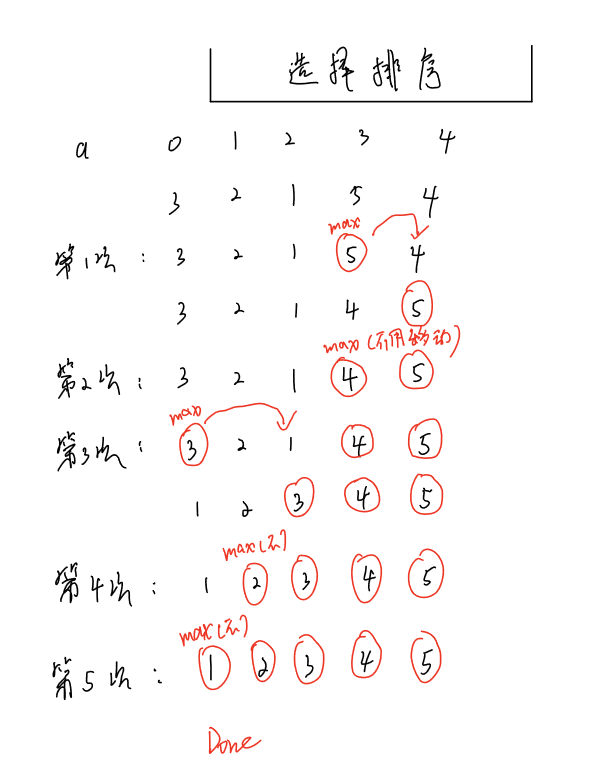 选择排序
a 0 1 2 3 4
3 2 1 5 4
max
第1次: 3 2 1 5 4
3 2 1 4 5
max(不用移动)
第2次: 3 2 1 4 5
max
第3次: 3 2 1 4 5
1 2 3 4 5
max(不)
第4次: 1 2 3 4 5
max(不)
第5次: 1 2 3 4 5
Done